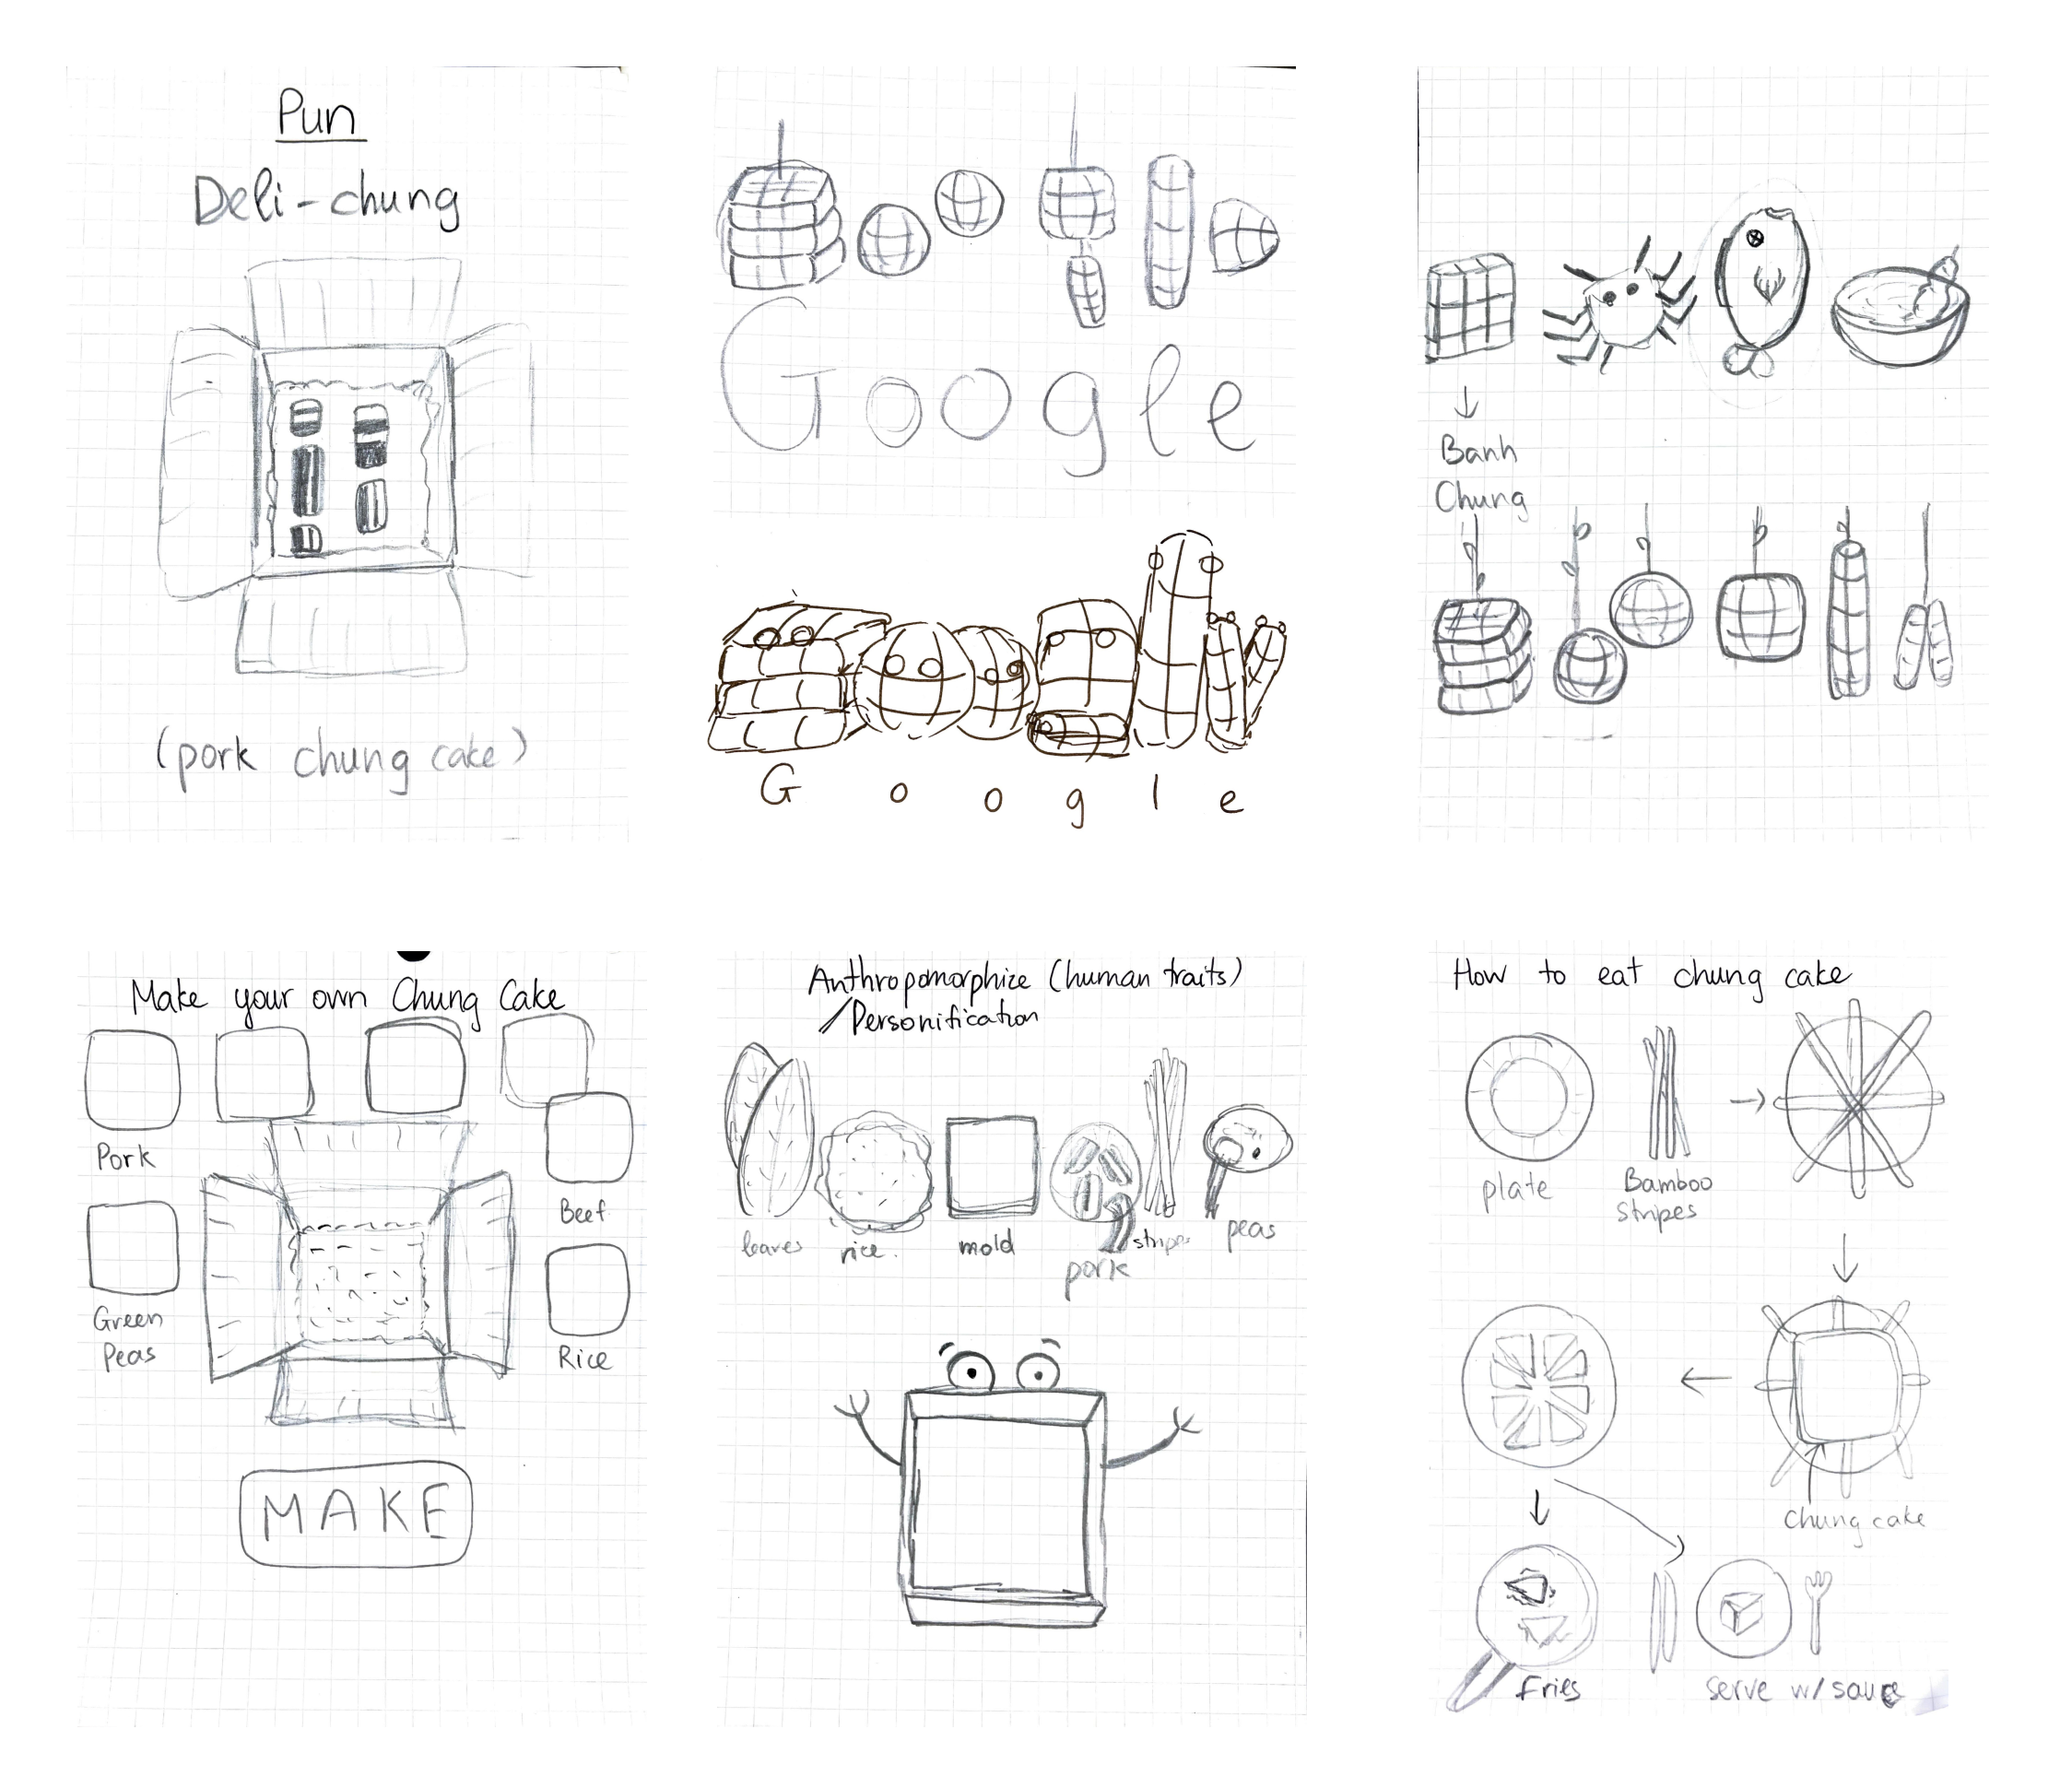 Pun
Deli-chung
(pork chung cake)
Google
G o o g l e
Banh
Chung
Make your own Chung Cake
Pork
Green
Peas
Beef
Rice
MAKE
Anthropomorphize (human traits)
/Personification
leaves
rice.
mold
pork
stripes
peas
How to eat chung cake
plate
Bamboo
Stripes
Chung cake
Fries
serve w/ sauce